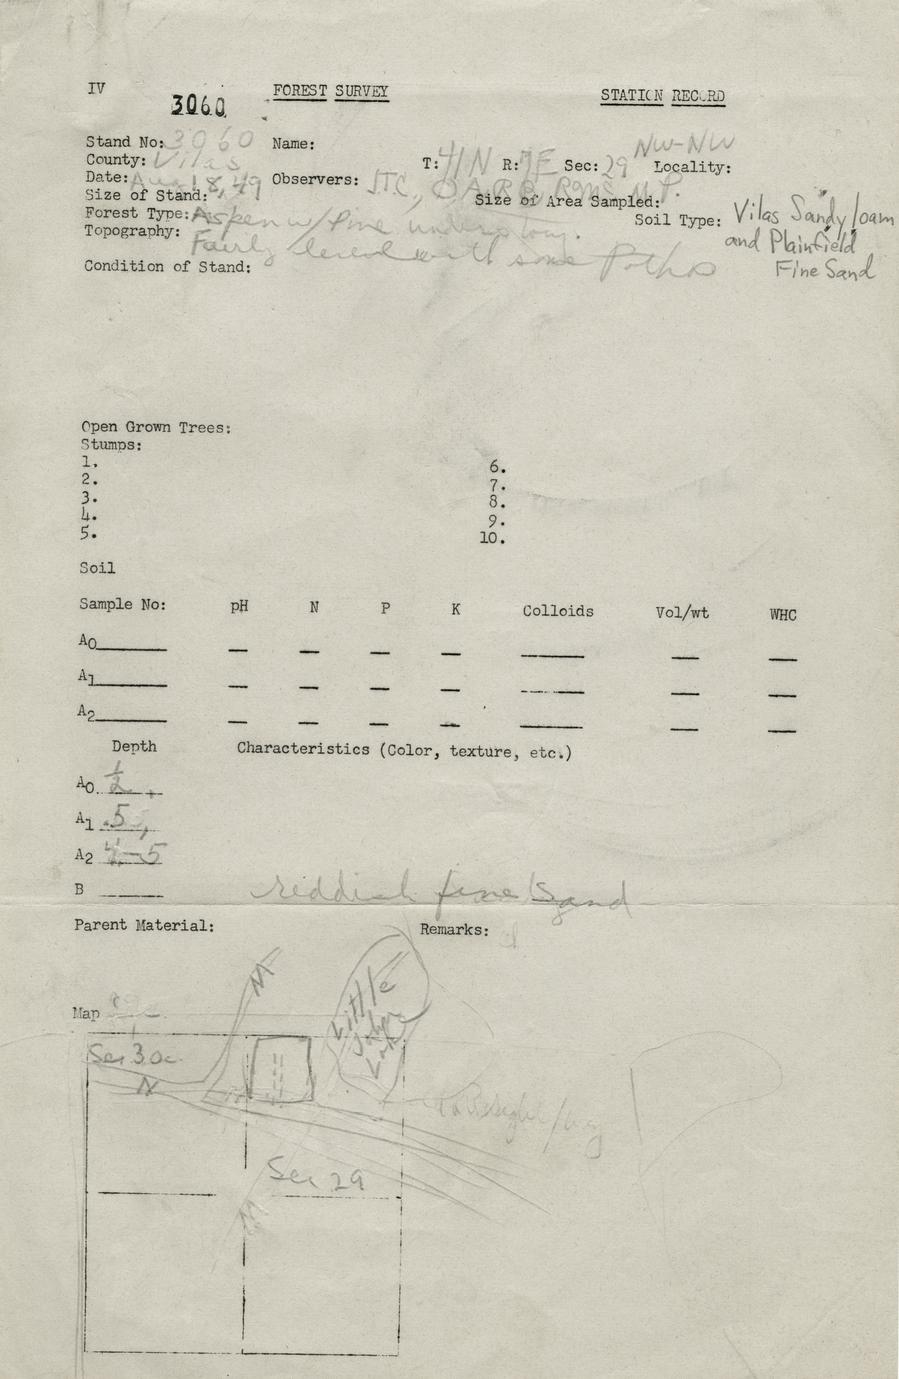 IV
3060
FOREST SURVEY
STATION RECORD
Stand No: 3060 Name:
NW-NW
County: Vilas T: 41N R: 7E Sec: 29 Locality:
Date: Aug 18, 49 Observers: JTC,
Size of Stand: Size of Area Sampled:
Forest Type: Aspen w/ Pine understory. Soil Type: Vilas Sandy loam
and Plainfield
Fine Sand
Topography: Fairly level with some
Condition of Stand:
Open Grown Trees:
Stumps:
1. 6.
2. 7.
3. 8.
4. 9.
5. 10.
Soil
Sample No: pH N P K Colloids Vol/wt WHC
A0
A1
A2
Depth Characteristics (Color, texture, etc.)
A0 1/2
A1 .5
A2 4-5
B reddish fine sand
Parent Material: Remarks:
Map
M
Little
John
Lake
Sec 30
N
Sec 29
M